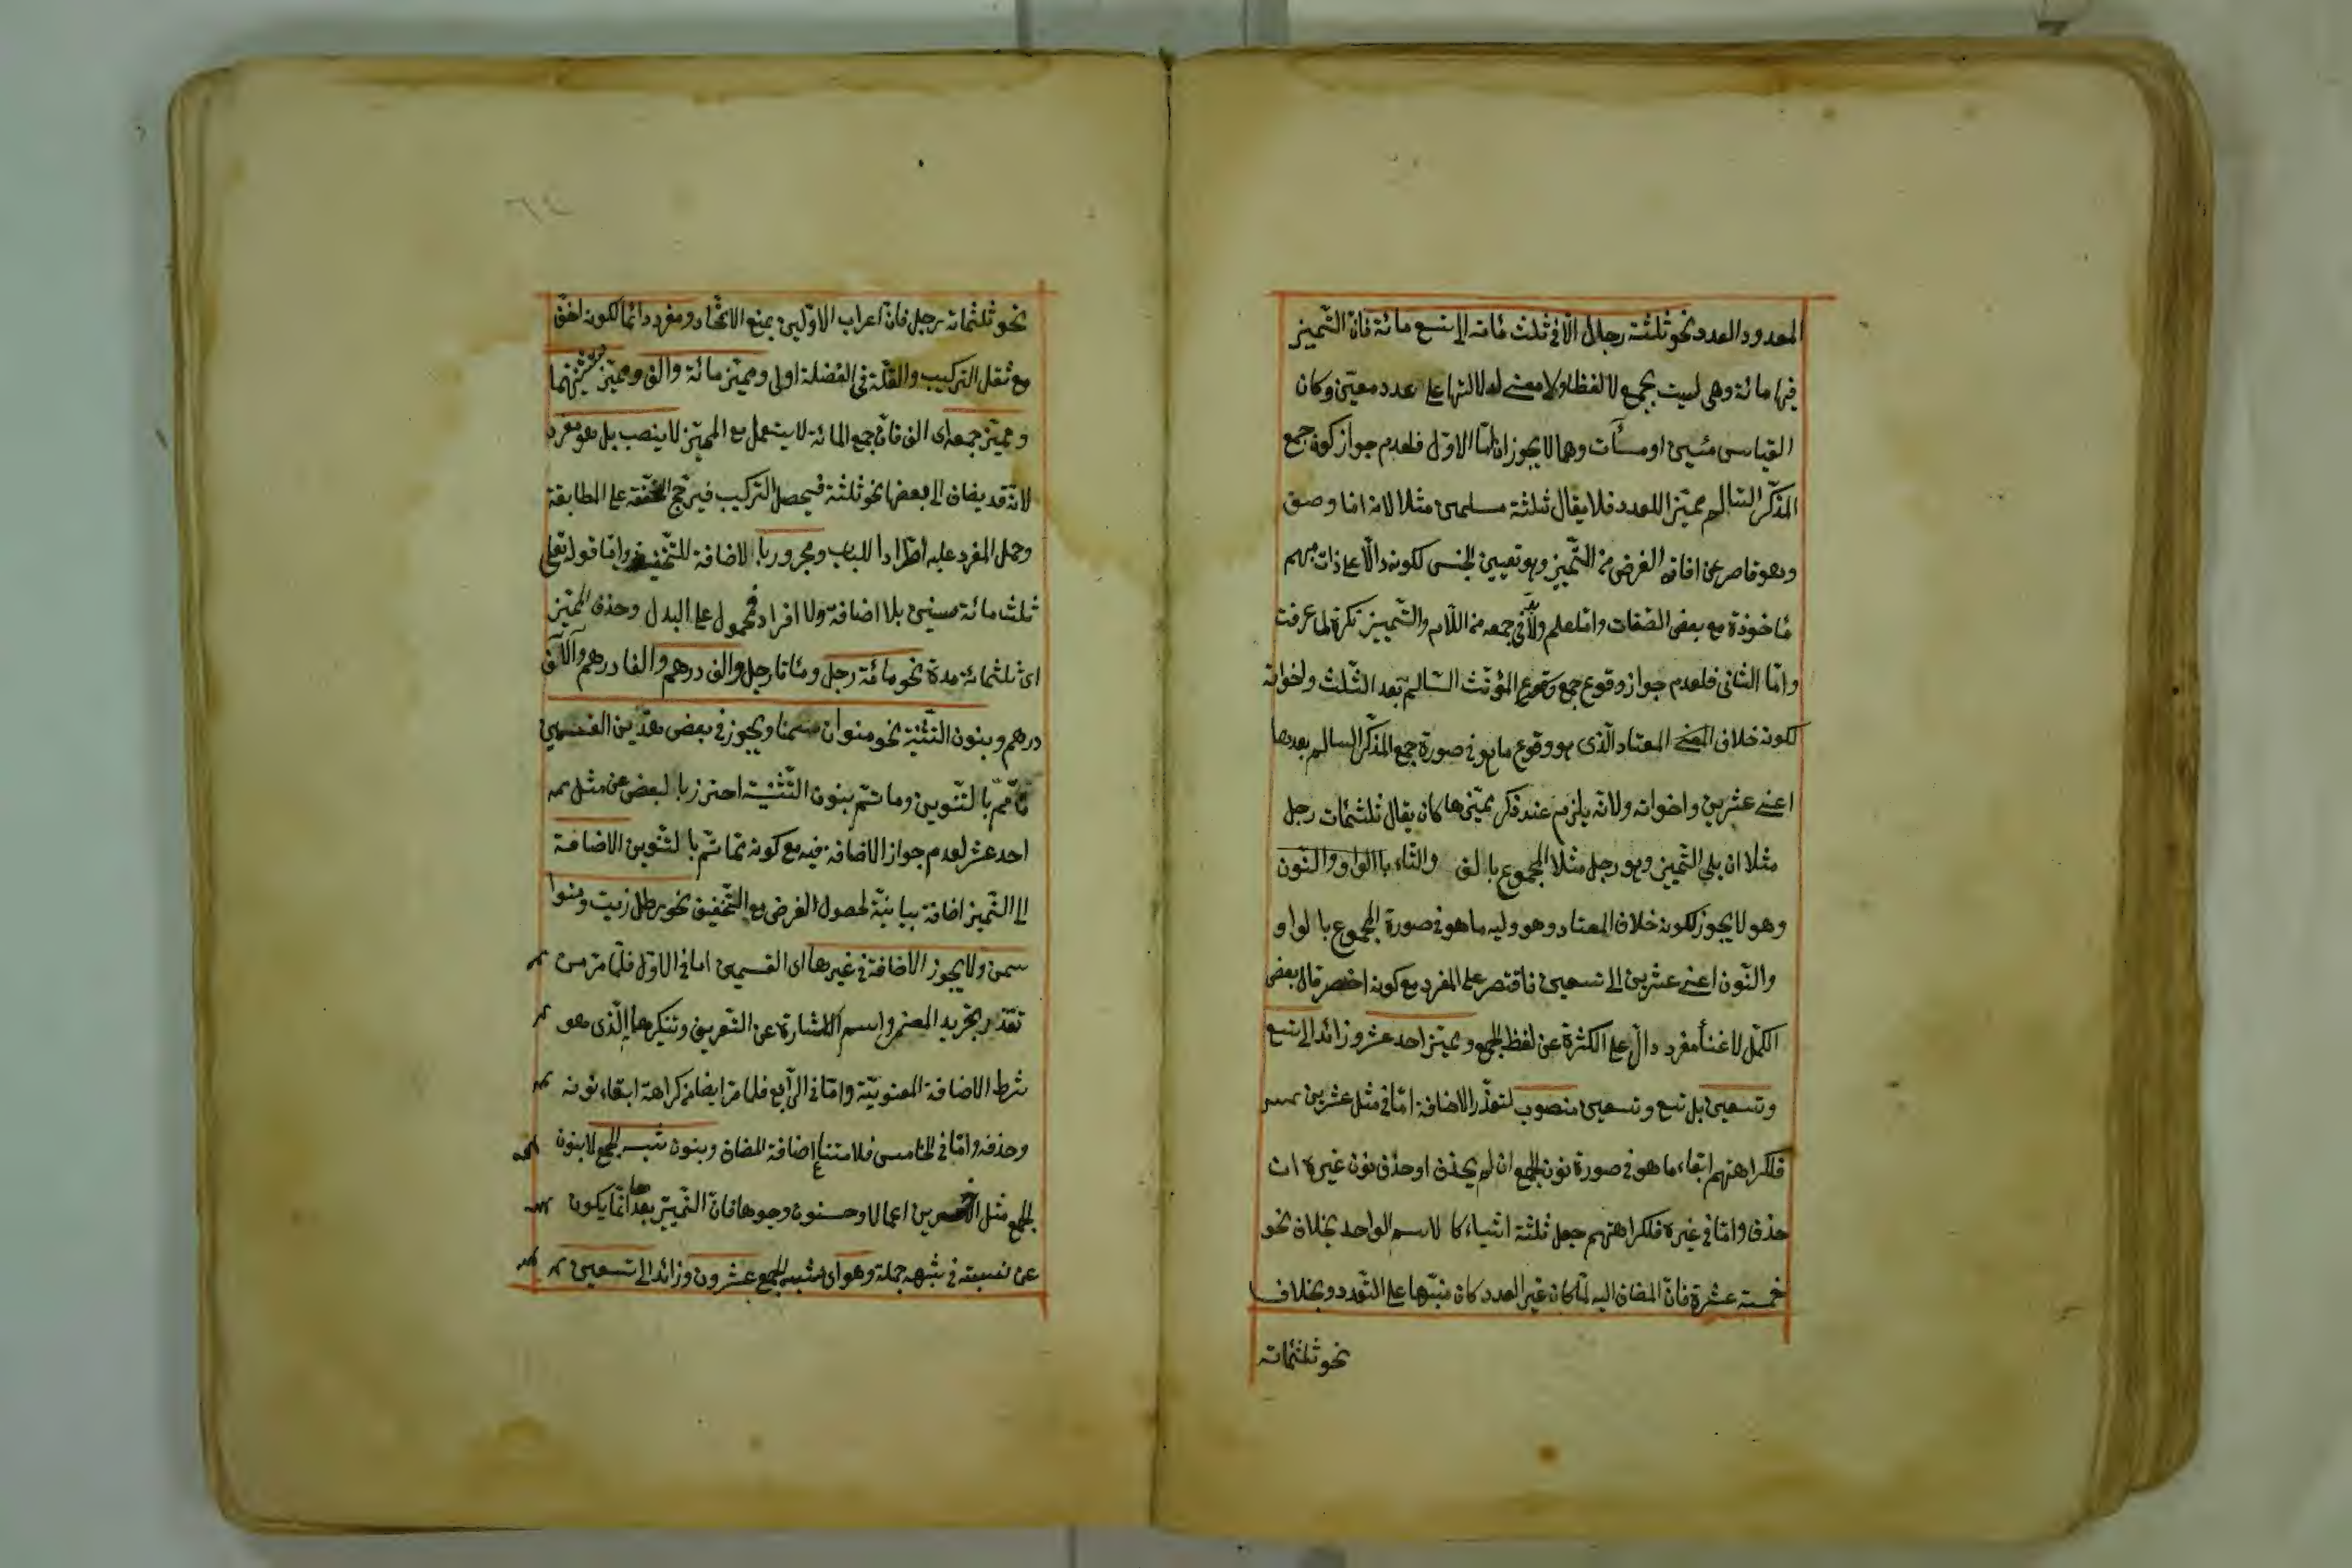 المعدود العدد نحو ثلثة رجال الا فى ثلث مائة الى تسع مائة فان التميز
فيها مائة وهى ليست بجمع لا لفظا ولا معنى لدلالتها على عدد معين وكان
القياس مئين او مئات وهما لا يجوزان اما الاول فلعدم جواز كون جمع
المذكر السالم مميز اللعدد فلا يقال ثلثة مسلمين مثلا لانه اما وصف
وهو قاصر عن افادة الغرض من التميز وهو تعيين الجنس لكونه دالا على ذات مبهم
مأخوذة مع بعض الصفات واما علم ولا بد فى جمعه من اللام والتمييز نكرة لما عرفت
واما الثانى فلعدم جواز وقوع جمع المؤنث السالم بعد الثلث واخواته
لكونه خلاف المعتاد الذى هو وقوع ما هو فى صورة جمع المذكر السالم بعدها
اعنى عشرين واخواته ولانه يلزم عند ذكر مميزها كان يقال ثلثمئات رجل
مثلا ان يلى التميز وهو رجل مثلا المجموع بالف والتاء بالواو والنون
وهو لا يجوز لكونه خلاف المعتاد وهو وليه ما هو فى صورة المجموع بالواو
والنون اعنى عشرين الى تسعين فاقتصر على المفرد مع كونه اخصر قال بعض
الكمل لاغناء مفرد دال على الكثرة عن لفظ الجمع ومميز احد عشر وزائد الى تسع
وتسعين بل تسع وتسعين منصوب لتعذر الاضافة اما فى مثل عشرين
فلكراهتهم ابقاء ما هو فى صورة نون الجمع ان لم يحذف او حذف نون غيره ان
حذف واما فى غيره فلكراهتهم جعل ثلثة اشياء كالاسم الواحد بخلاف نحو
خمسة عشرة فان المضاف اليه لما كان غير العدد كان منبها على التعدد وبخلاف
نحو ثلثمائة
٦٤
نحو ثلثمائة رجل فان اعراب الاولين يمنع الاتحاد ومفرد دائما لكونه اخف
مع ثقل التركيب والقلة فى الفضلة اولى ومميز مائة والف ومميز تثنيتهما
ومميز جمعه اى الف فان جمع المائة لا يستعمل مع المميز لا ينصب بل هو مفرد
لانه قد يضاف الى بعضها نحو ثلثة فيحصل التركيب فيرجح الخفة على المطابقة
وحمل المفرد عليه اطرادا للباب ومجرور بالاضافة للتخفيف واما قوله تعالى
ثلث مائة سنين بلا اضافة ولا افراد فمحمول على البدل وحذف المميز
اى ثلثمائة مدة نحو مائة رجل ومئاتا رجل والف درهم والفا درهم وآلاف
درهم وبنون التثنية نحو منوان سمنا ويجوز فى بعض هذين القسمين
ما تم بالتنوين وما تم بنون التثنية احترز بالبعض عن مثل
احد عشر لعدم جواز الاضافة فيه مع كونه مما تم بالتنوين الاضافة
الى التميز اضافة بيانية لحصول الغرض مع التخفيف نحو رطل زيت ومنوا
سمن ولا يجوز الاضافة فى غيرها اى القسمين اما فى الاول فلما مر من
تعذر تجريد المضمر واسم الاشارة عن التعريف وتنكيرها الذى هو
شرط الاضافة المعنوية واما فى الرابع فلما مر ايضا من كراهة ابقاء نونه
وحذفه واما فى الخامس فلامتناع اضافة المضاف وبنون شبه الجمع لا بنون
الجمع مثل الاخسرين اعمالا وحسنون وجوها فان التمييز بعدها انما يكون
عن نسبته فى شبه جملة وهو اى شبه الجمع عشرون وزائد الى تسعين